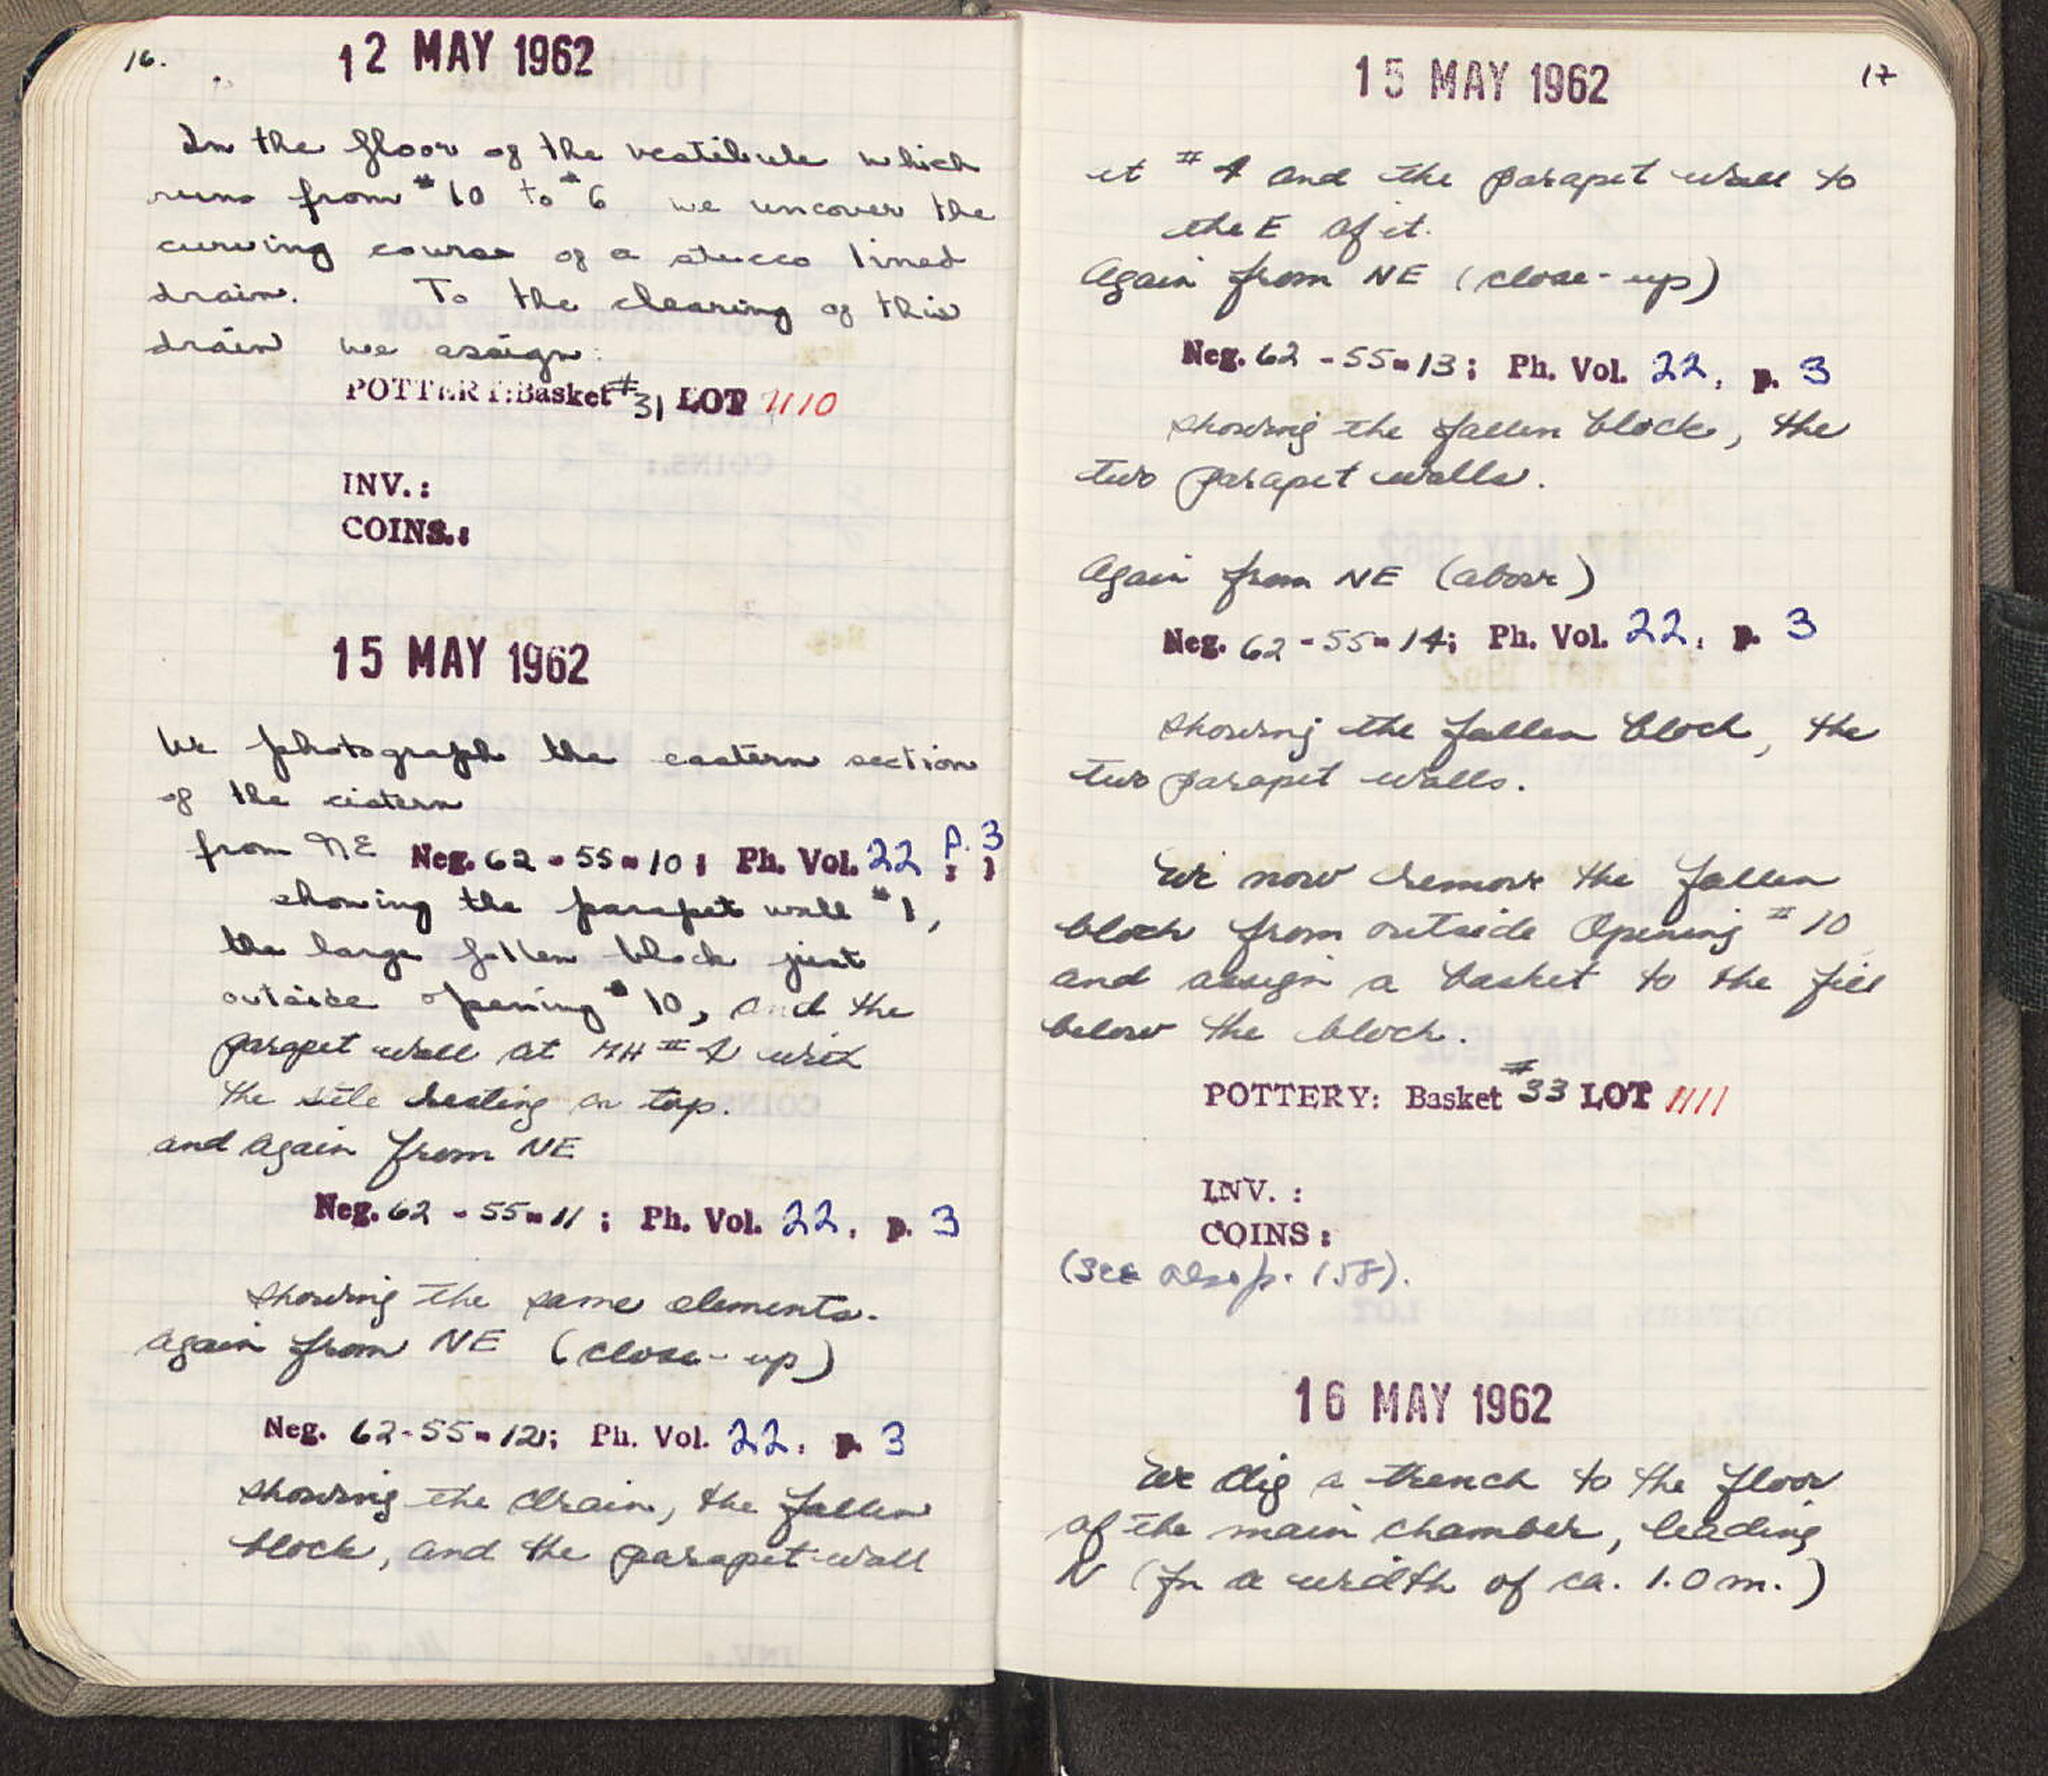 16.
12 MAY 1962
In the floor of the vestibule which
runs from #10 to #6 we uncover the
curving course of a stucco lined
drain. To the clearing of this
drain we assign:
POTTERY: Basket #31 LOT 1110
INV.:
COINS.:
15 MAY 1962
We photograph the eastern section
of the cistern
from NE Neg. 62-55-10; Ph. Vol. 22, p. 3
showing the parapet wall #1,
the large fallen block just
outside opening #10, and the
parapet wall at MH #4 with
the stele resting on top.
and again from NE
Neg. 62-55-11; Ph. Vol. 22, p. 3
showing the same elements.
Again from NE (close-up)
Neg. 62-55-12; Ph. Vol. 22, p. 3
showing the drain, the fallen
block, and the parapet wall
15 MAY 1962
17
at #4 and the parapet wall to
the E of it.
Again from NE (close-up)
Neg. 62-55-13; Ph. Vol. 22, p. 3
showing the fallen block, the
two parapet walls.
Again from NE (above)
Neg. 62-55-14; Ph. Vol. 22, p. 3
showing the fallen block, the
two parapet walls.
We now remove the fallen
block from outside Opening #10
and assign a basket to the fill
below the block.
POTTERY: Basket #33 LOT 1111
INV.:
COINS:
(See also p. 158).
16 MAY 1962
We dig a trench to the floor
of the main chamber, leading
N (In a width of ca. 1.0 m.)